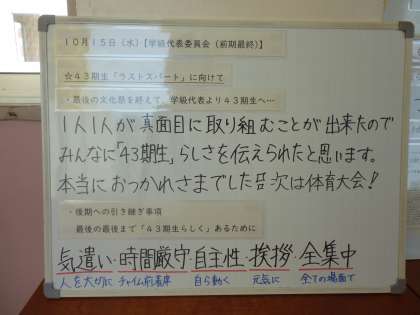 １０月１５日（水）【学級代表委員会（前期最終）】
☆４３期生「ラストスパート」に向けて
・最後の文化祭を終えて、学級代表より４３期生へ…
1人1人が真面目に取り組むことが出来たので
みんなに「43期生」らしさを伝えられたと思います。
本当におつかれさまでした 次は体育大会！
・後期への引き継ぎ事項
最後の最後まで「４３期生らしく」あるために
気遣い・時間厳守・自主性・挨拶・全集中
人を大切に チャイム前着席 自ら動く 元気に 全ての場面で